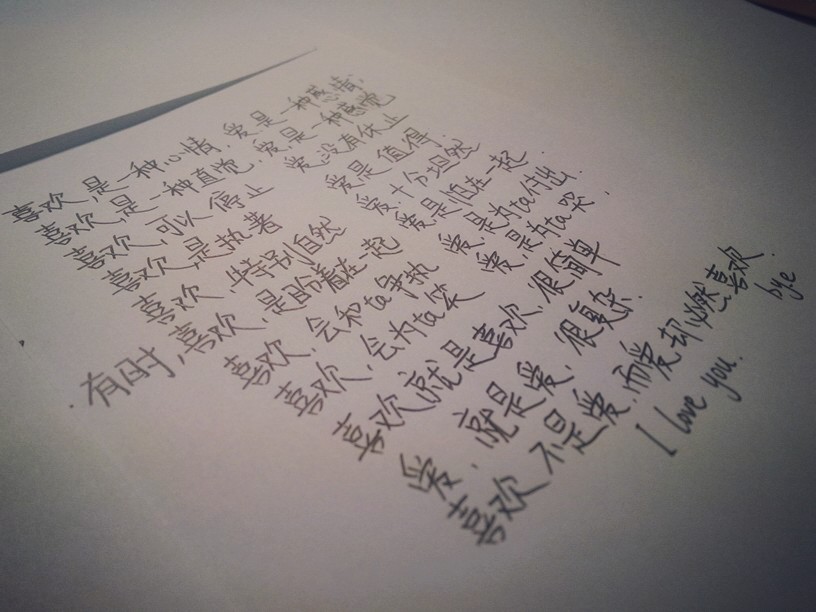 喜欢,是一种心情,爱,是一种感情.
喜欢,是一种直觉,爱,是一种感觉
喜欢,可以停止 爱,没有休止
喜欢,是执著 爱是值得.
喜欢,特别自然 爱,十分坦然
有时,喜欢,是盼着在一起 爱,是怕在一起.
喜欢,会和ta争执 爱,是为ta付出.
喜欢,会为ta笑 爱,是为ta哭.
喜欢就是喜欢,很简单
爱,就是爱,很复杂.
喜欢不是爱,而爱却必然喜欢.
bye
I love you.